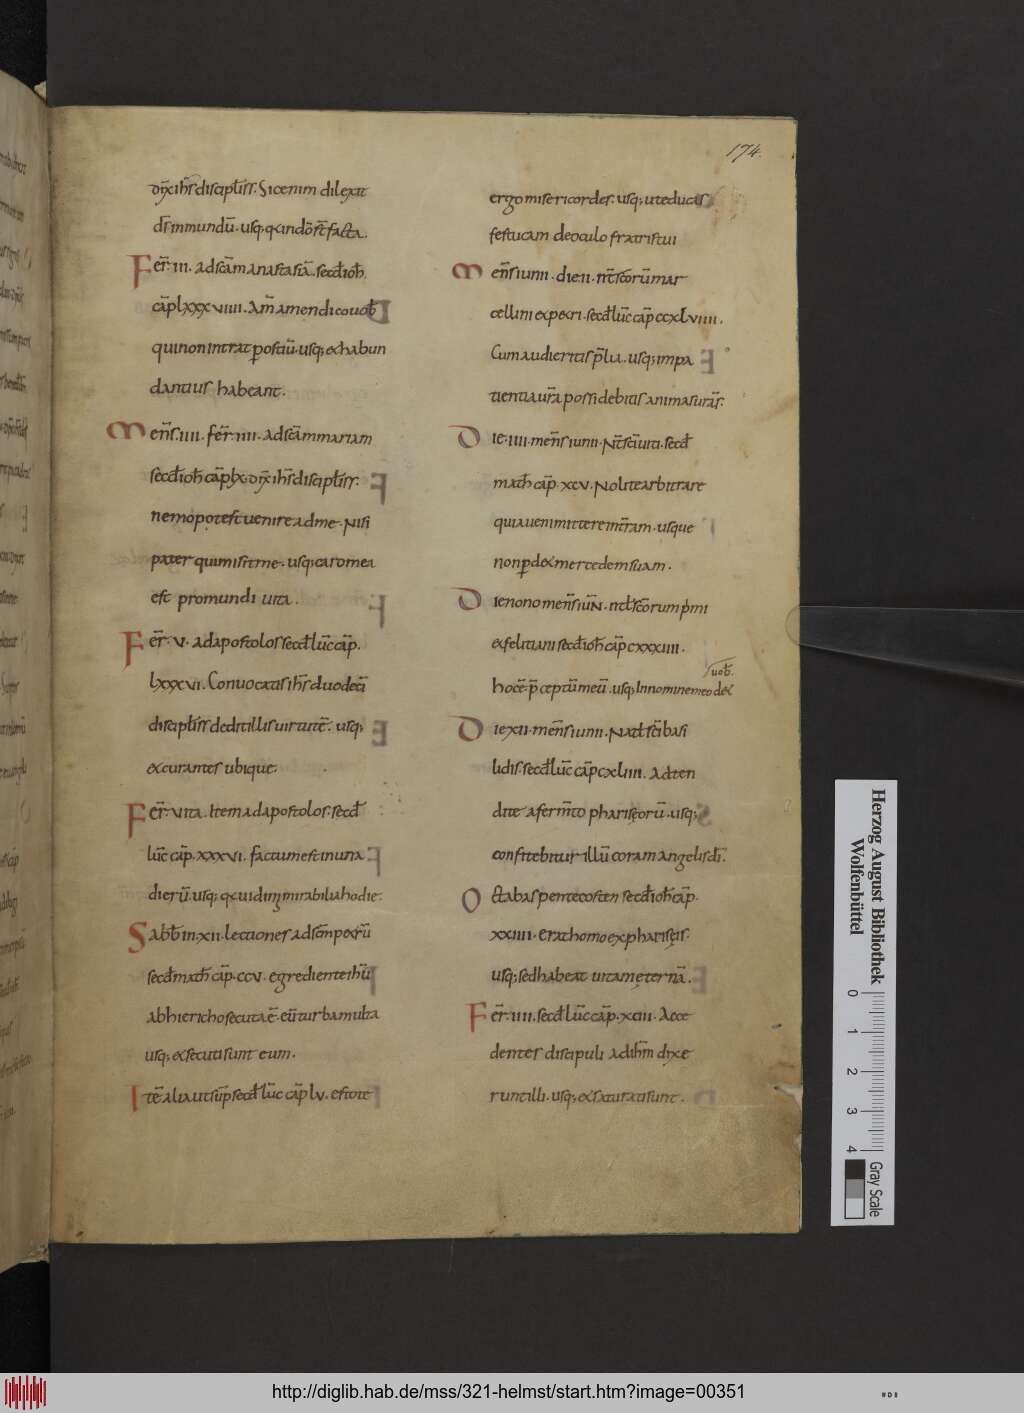 174.
dix̄ ih̄s discipl̄is s̄. Sic enim dilexit
d̄s mundū. usq; q̄ in dō s̄t facta.
Fer̄. III. ad sc̄am anastasiā. secd̄ ioh̄.
cap̄ LXXXVIIII. Am̄ amen dico uob̄
qui non intrat p ostiū. usq; & habun
dantius habeant.
Men̄s. IIII. fer̄. IIII. ad sc̄am mariam
secd̄ ioh̄ cap̄ LX. dix̄ ih̄s discipl̄is s̄.
nemo potest uenire ad me. Nisi
pater qui misit me. usq; caro mea
est pro mundi uita.
Fer̄. V. ad apostolos secd̄ luc̄ cap̄.
LXXXVI. Conuocatis ih̄s duodeci
discipl̄is s̄ dedit illis uirtutē. usq;
& curantes ubique.
Fer̄. VI ta. Item ad apostolos. secd̄
luc̄ cap̄. XXXVI. factum est in una
dierū. usq; q̄a uidim; mirabilia hodie.
Sabb̄ in XII. lectiones ad sc̄m petrū
secd̄ math̄ cap̄. CCV. egrediente ih̄u
ab hiericho secuta ē. eū turba multa
usq; & secuti sunt eum.
Itē alia ut sup̄ secd̄ luc̄ cap̄ LV. estote
ergo misericordes. usq; ut educas
festucam de oculo fratris tui
Men̄s iunii. die. II. nt̄ sc̄orū mar
cellini & petri. secd̄ luc̄ cap̄ CCXLVIIII.
Cum audieritis p̄lia. usq; in pa
tientia ur̄a possidebitis animas ur̄as.
Die. IIII. men̄s iunii. Nt̄ sc̄i uiti. secd̄
math̄ cap̄. XCV. Nolite arbitrare
quia ueni mittere in tr̄am. usque
non pd& mercedem suam.
Die nono men̄s iūn. nat̄ sc̄orum pimi
& feliciani secd̄ ioh̄ cap̄ CXXXIIII.
uob̄.
hoc ē p̄ceptū meū. usq; In nomine meo d&
Die XII. men̄s iunii. Nat̄ sc̄i basi
lidis. secd̄ luc̄ cap̄ CXLIIII. Adten
dite a ferm̄to pharisęorū. usq;
confitebitur illū coram angelis dī.
Octabas pentecosten secd̄ ioh̄ cap̄.
XXIIII. Erat homo ex pharisęis.
usq; sed habeat uitam ęternā.
Fer̄. IIII. secd̄ luc̄ cap̄. XCIII. Acce
dentes discipuli ad ih̄m dixe
runt illi. usq; & saturati sunt.
Herzog August Bibliothek
Wolfenbüttel
0 1 2 3 4
Gray Scale
http://diglib.hab.de/mss/321-helmst/start.htm?image=00351